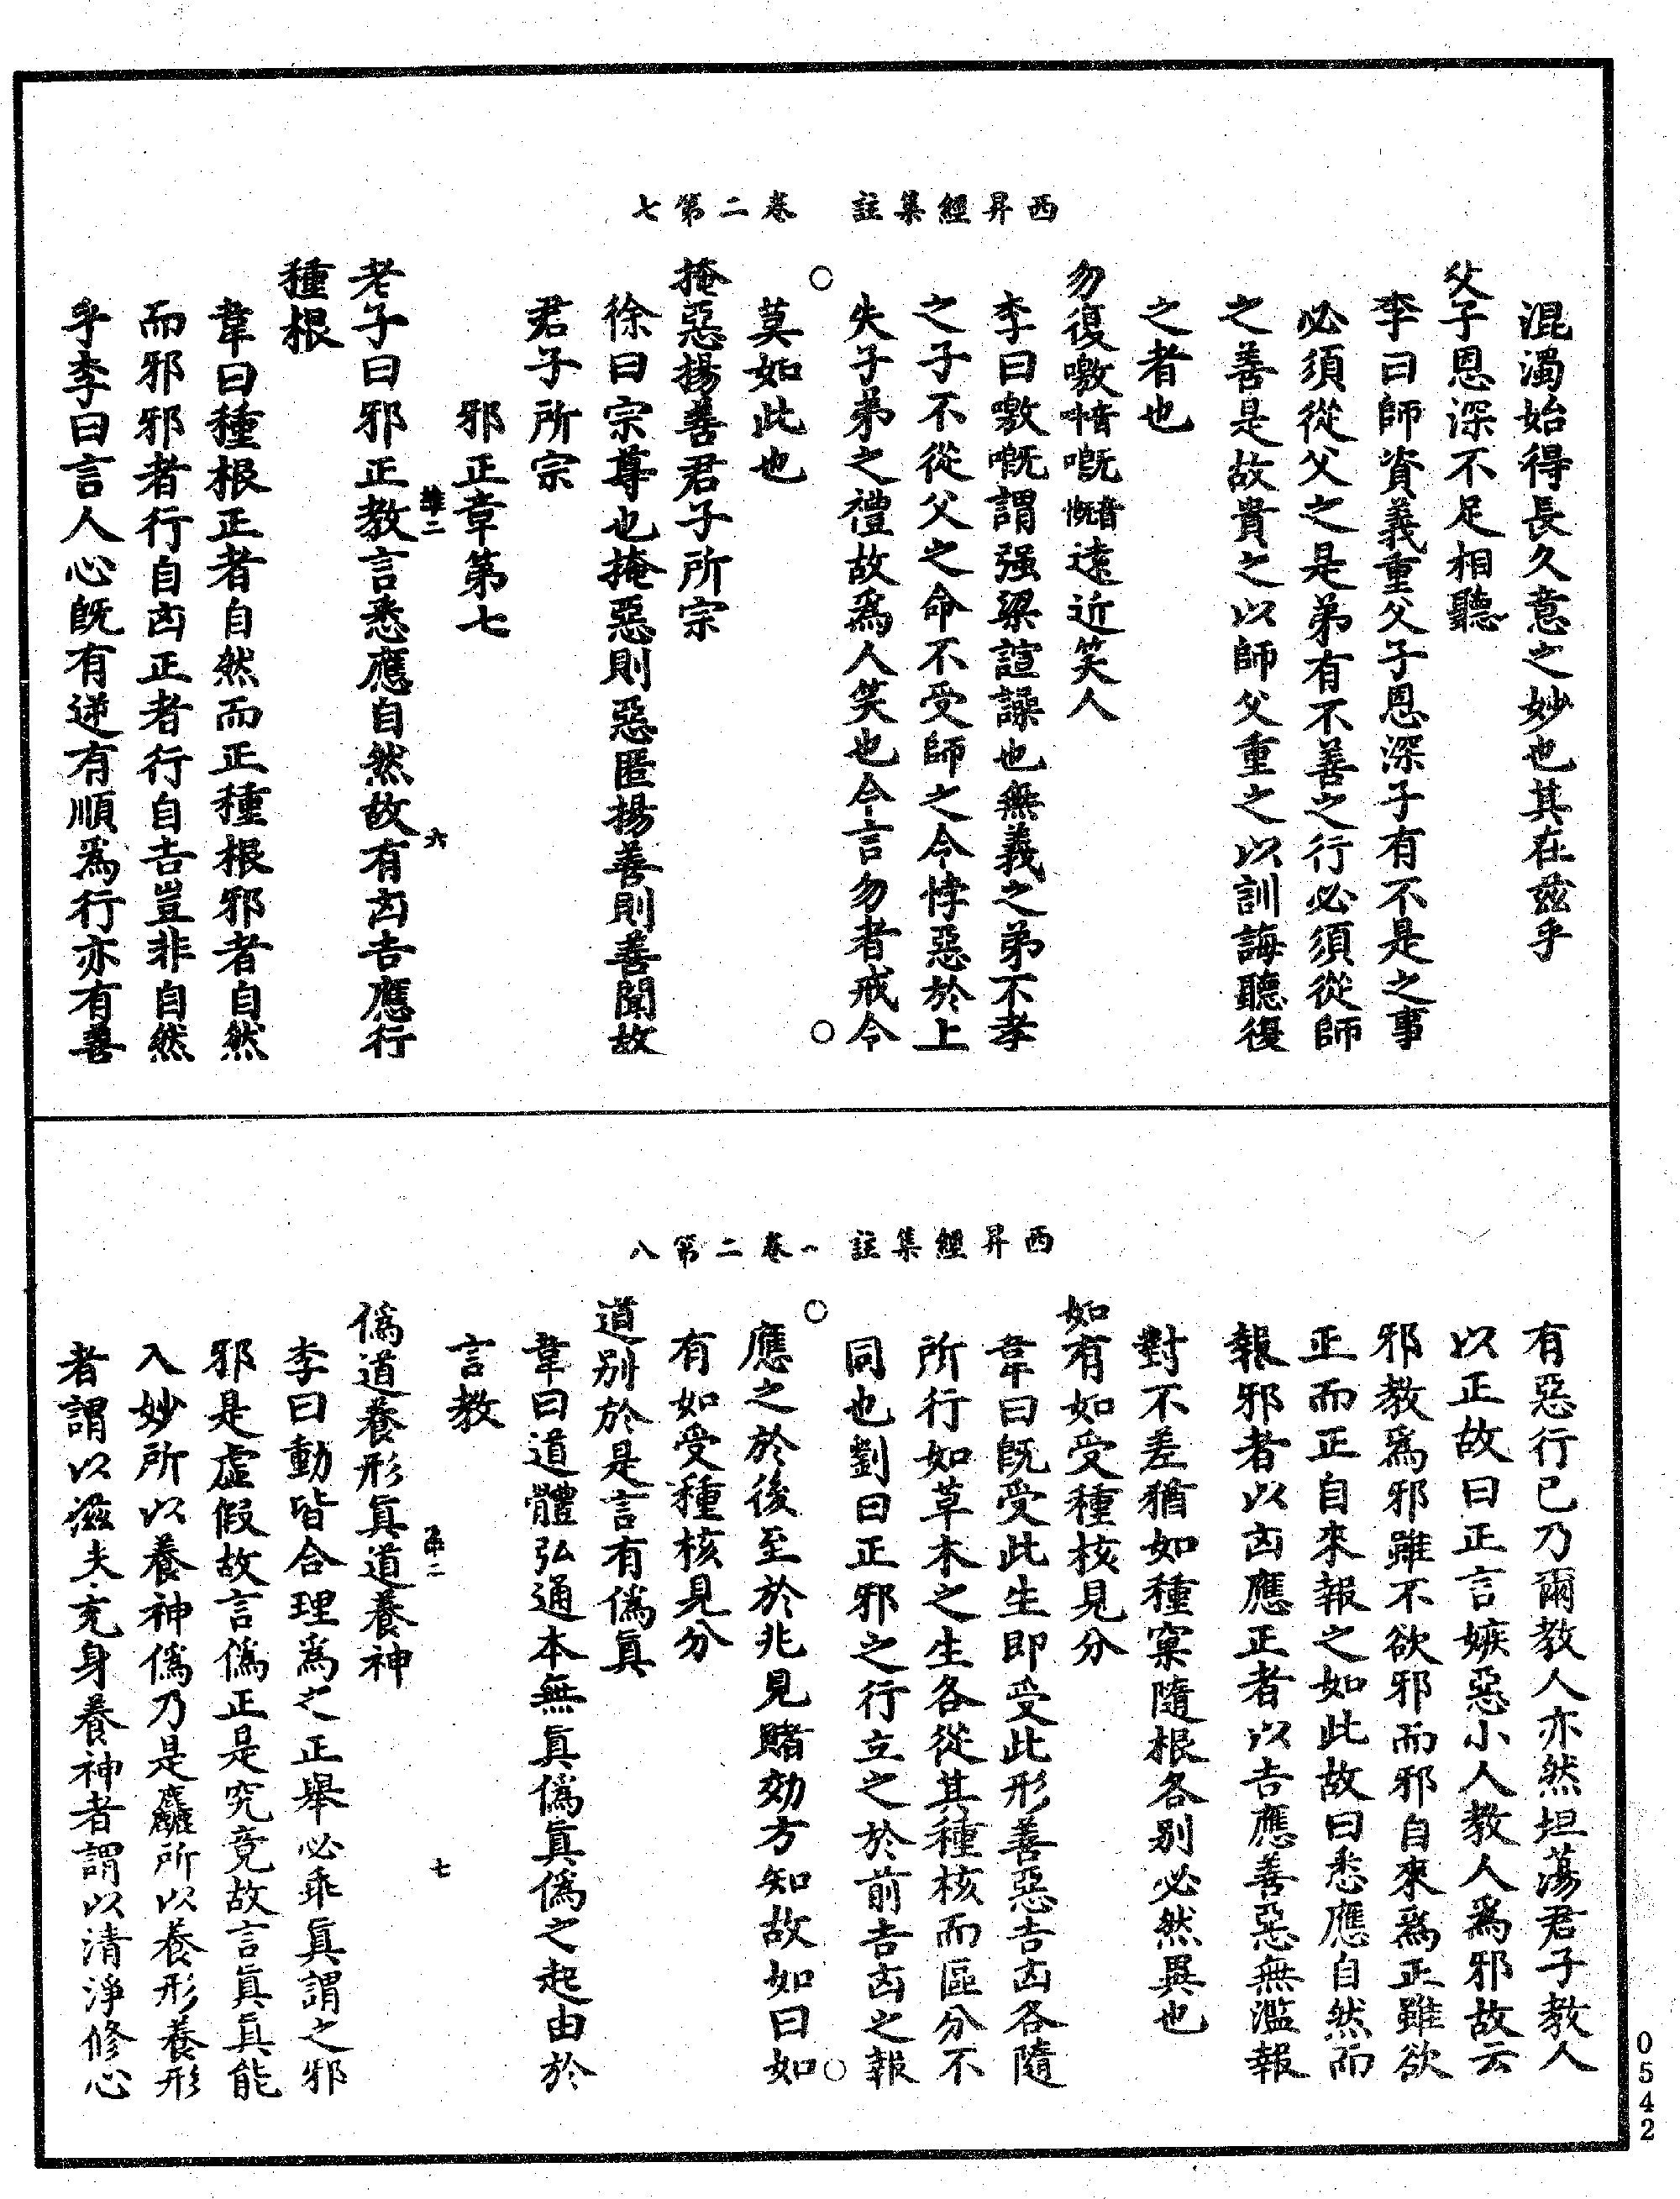 西昇經集註　卷二第七
混濁始得長久意之妙也其在兹乎
父子恩深不足相聽
李曰師資義重父子恩深子有不是之事
必須從父之是弟有不善之行必須從師
之善是故貴之以師父重之以訓誨聽復
之者也
勿復噭唶嘅音慨遠近笑人
李曰噭嘅謂强梁諠譟也無義之弟不孝
之子不從父之命不受師之令悖惡於上
失子弟之禮故爲人笑也今言勿者戒令
莫如此也
掩惡揚善君子所宗
徐曰宗尊也掩惡則惡匿揚善則善聞故
君子所宗
邪正章第七
維二
六
老子曰邪正教言悉應自然故有凶吉應行
種根
韋曰種根正者自然而正種根邪者自然
而邪邪者行自凶正者行自吉豈非自然
乎李曰言人心既有逆有順爲行亦有善
西昇經集註　卷二第八
有惡行已乃爾教人亦然坦蕩君子教人
以正故曰正言嫉惡小人教人爲邪故云
邪教爲邪雖不欲邪而邪自來爲正雖欲
正而正自來報之如此故曰悉應自然而
報邪者以凶應正者以吉應善惡無濫報
對不差猶如種窠隨根各别必然異也
如有如受種核見分
韋曰既受此生即受此形善惡吉凶各隨
所行如草木之生各從其種核而區分不
同也劉曰正邪之行立之於前吉凶之報
應之於後至於兆見賭効方知故如曰如
有如受種核見分
道别於是言有僞眞
韋曰道體弘通本無眞僞眞僞之起由於
言教
二
七
僞道養形眞道養神
李曰動皆合理爲之正舉必乖眞謂之邪
邪是虛假故言僞正是究竟故言眞眞能
入妙所以養神僞乃是麤所以養形養形
者謂以滋夫充身養神者謂以清淨修心
0542